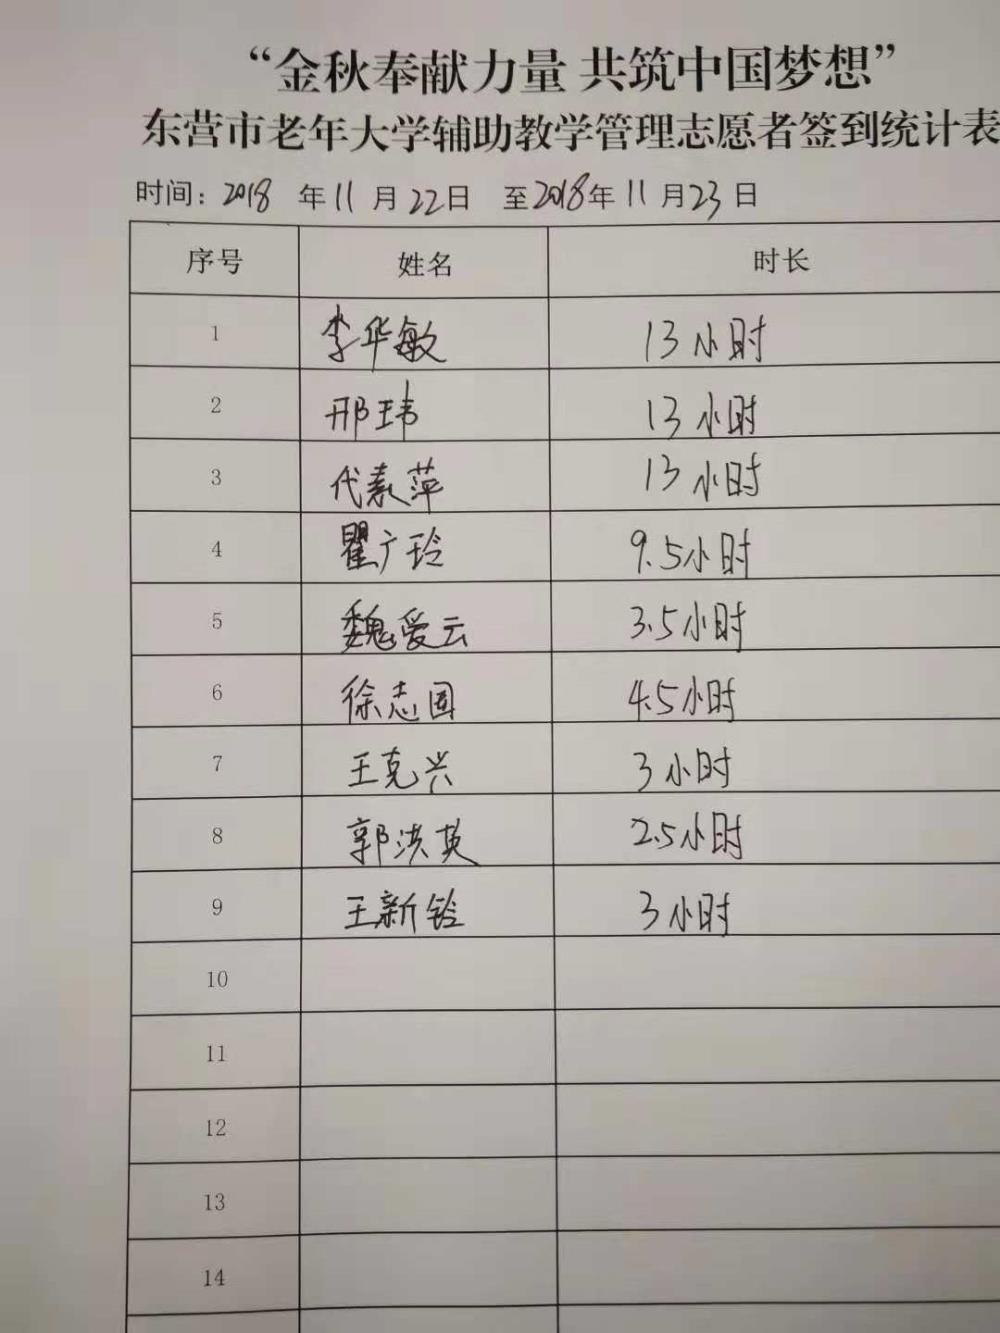 “金秋奉献力量 共筑中国梦想”
东营市老年大学辅助教学管理志愿者签到统计表
时间：2018 年 11 月 22日 至2018年 11 月23 日
序号 姓名 时长
1 李华敏 13小时
2 邢玮 13小时
3 代素萍 13小时
4 瞿广玲 9.5小时
5 魏爱云 3.5小时
6 徐志国 4.5小时
7 王克兴 3小时
8 郭洪英 2.5小时
9 王新铃 3小时
10
11
12
13
14